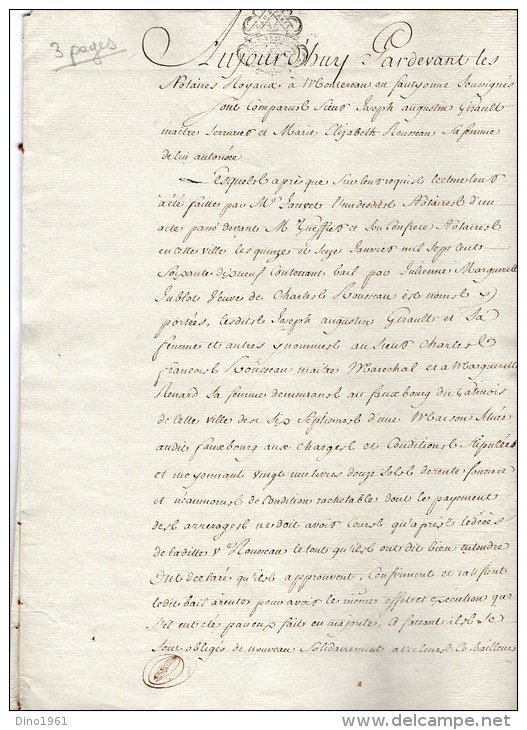 3 pages
Aujourd'huy Pardevant les
Notaires Royaux a Montereau en fautyonne Soussignés
sont Comparus Sieur Joseph augustin Girault
maitre Serrurier et Marie Elizabeth Rousseau Sa femme
de lui autorisée
Lesquels après que Sur leur requis lecture leur
a été faitte par Me Jauvet l'un desdits Notaires d'un
acte passé devant M. Gueffier et son Confrere Notaires
en cette ville les quinze et Seize Janvier mil Sept Cent
Soixante dix neuf Contenant bail par Julienne Marguerite
veuve de Charles Rousseau es noms y
portées, lesdits Joseph augustin Girault et Sa
femme et autres y nommés au Sieur Charles
François Rousseau maitre Marechal et a Marguerite
Renard Sa femme demeurans au fauxbourg du Gatinois
de cette ville des Six Septiemes d'une Maison Située
audit fauxbourg aux Charges et Conditions Stipulées
et moyennant vingt une livres douze Sols de rente fonciere
et neanmoins de Condition rachetable dont le payement
des arrerages ne doit avoir Cours qu'après le décès
de laditte ve Rousseau le tout qu'ils ont dit bien entendre
Ont declaré qu'ils approuvent, Confirment et ratifient
ledit bail a rente pour avoir le même effet et execution que
s'il eut été par eux fait en majorité, Ce faisant ils se
sont obligés de nouveau Solidairement avec leurs Co-bailleurs
Dino1961
delcampe.net